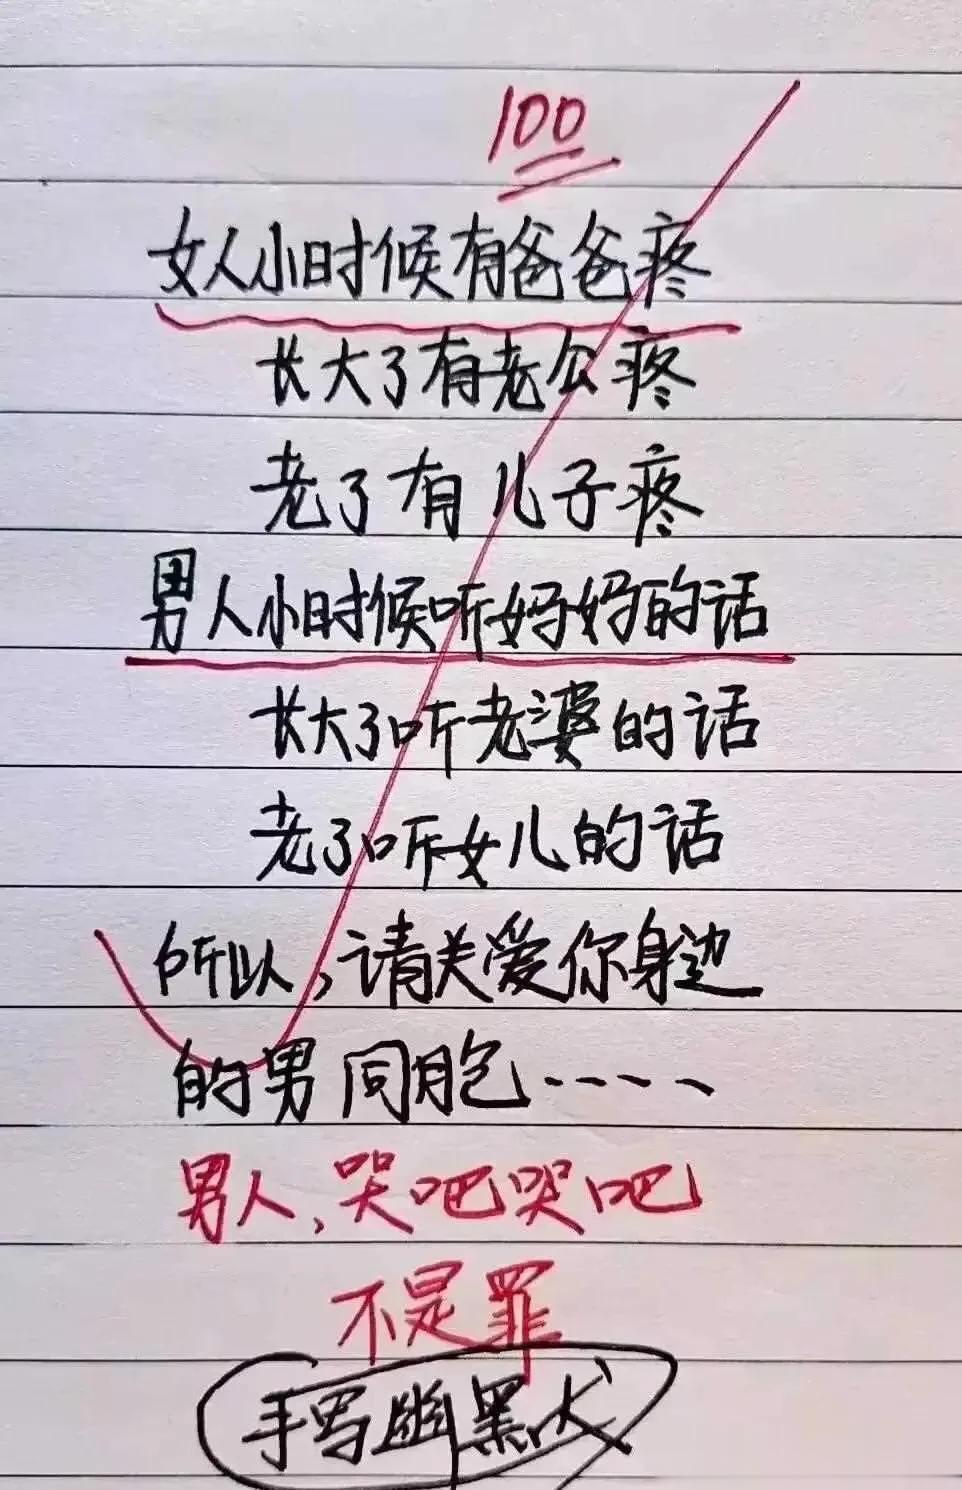 100
女人小时候有爸爸疼
长大了有老公疼
老了有儿子疼
男人小时候听妈妈的话
长大了听老婆的话
老了听女儿的话
所以,请关爱你身边
的男同胞....
男人,哭吧哭吧
不是罪
手写幽黑犬